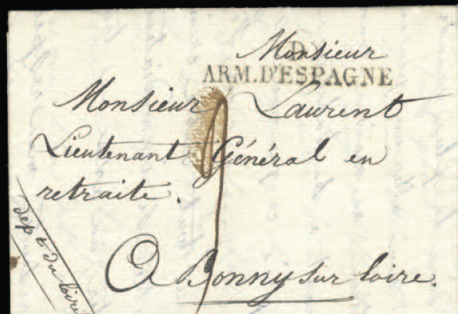 Monsieur
D
ARM. D'ESPAGNE
Monsieur Laurent
Lieutenant Général en
retraite.
A Bonny sur loire.